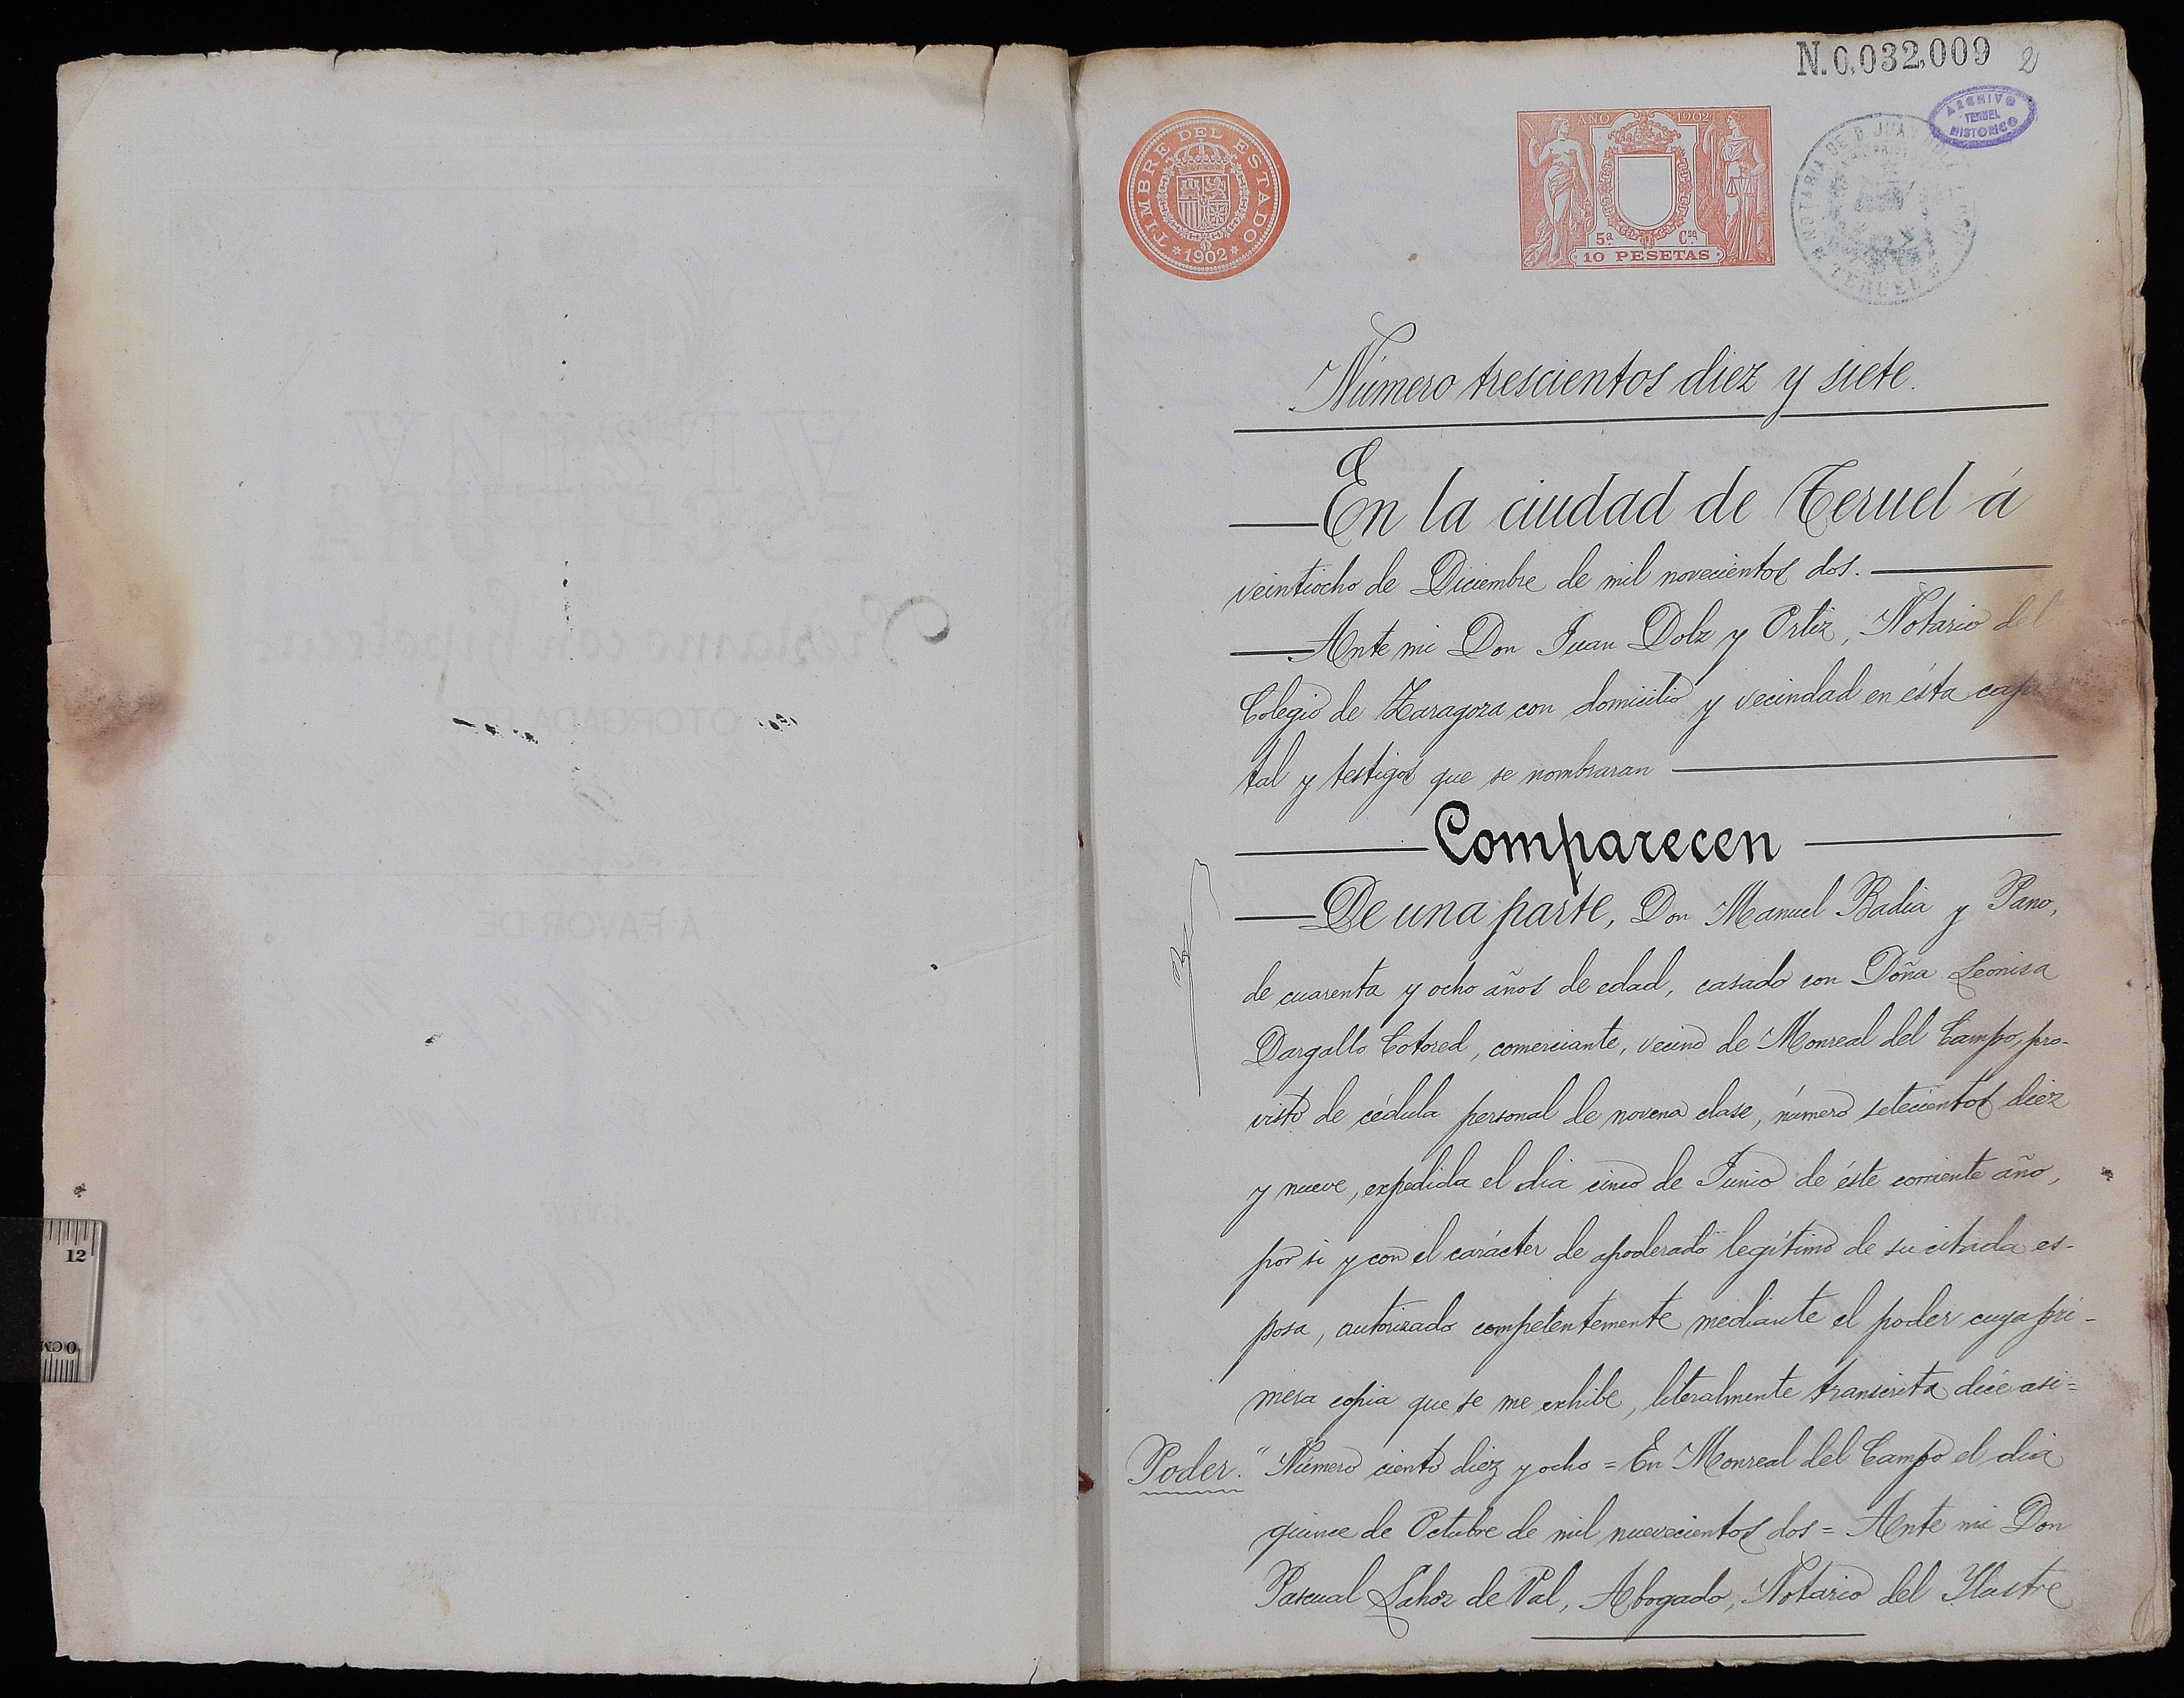 N. 0,032,009 2
ARCHIVO
TERUEL
HISTORICO
TIMBRE DEL ESTADO
* 1902 *
AÑO 1902
5ª Cse
10 PESETAS
NOTARIA DE D. JUAN
TERUEL
Número trescientos diez y siete.
En la ciudad de Teruel á
veintiocho de Diciembre de mil novecientos dos.
Ante mi Don Juan Dolz y Ortiz, Notario del
Colegio de Zaragoza con domicilio y vecindad en ésta capi
tal y testigos que se nombraran
Comparecen
De una parte, Don Manuel Badia y Pano,
de cuarenta y ocho años de edad, casado con Doña Leonisa
Dargallo Cotored, comerciante, vecino de Monreal del Campo, pro-
visto de cédula personal de novena clase, número setecientos diez
y nueve, expedida el dia cinco de Junio de éste corriente año,
por si y con el carácter de apoderado legítimo de su citada es-
posa, autorizado competentemente mediante el poder cuya pri-
mera copia que se me exhibe, literalmente transcrita dice asi=
Poder. "Número ciento diez y ocho = En Monreal del Campo el dia
quince de Octubre de mil nuevecientos dos = Ante mi Don
Pascual Lahoz de Val, Abogado, Notario del Ylustre
12